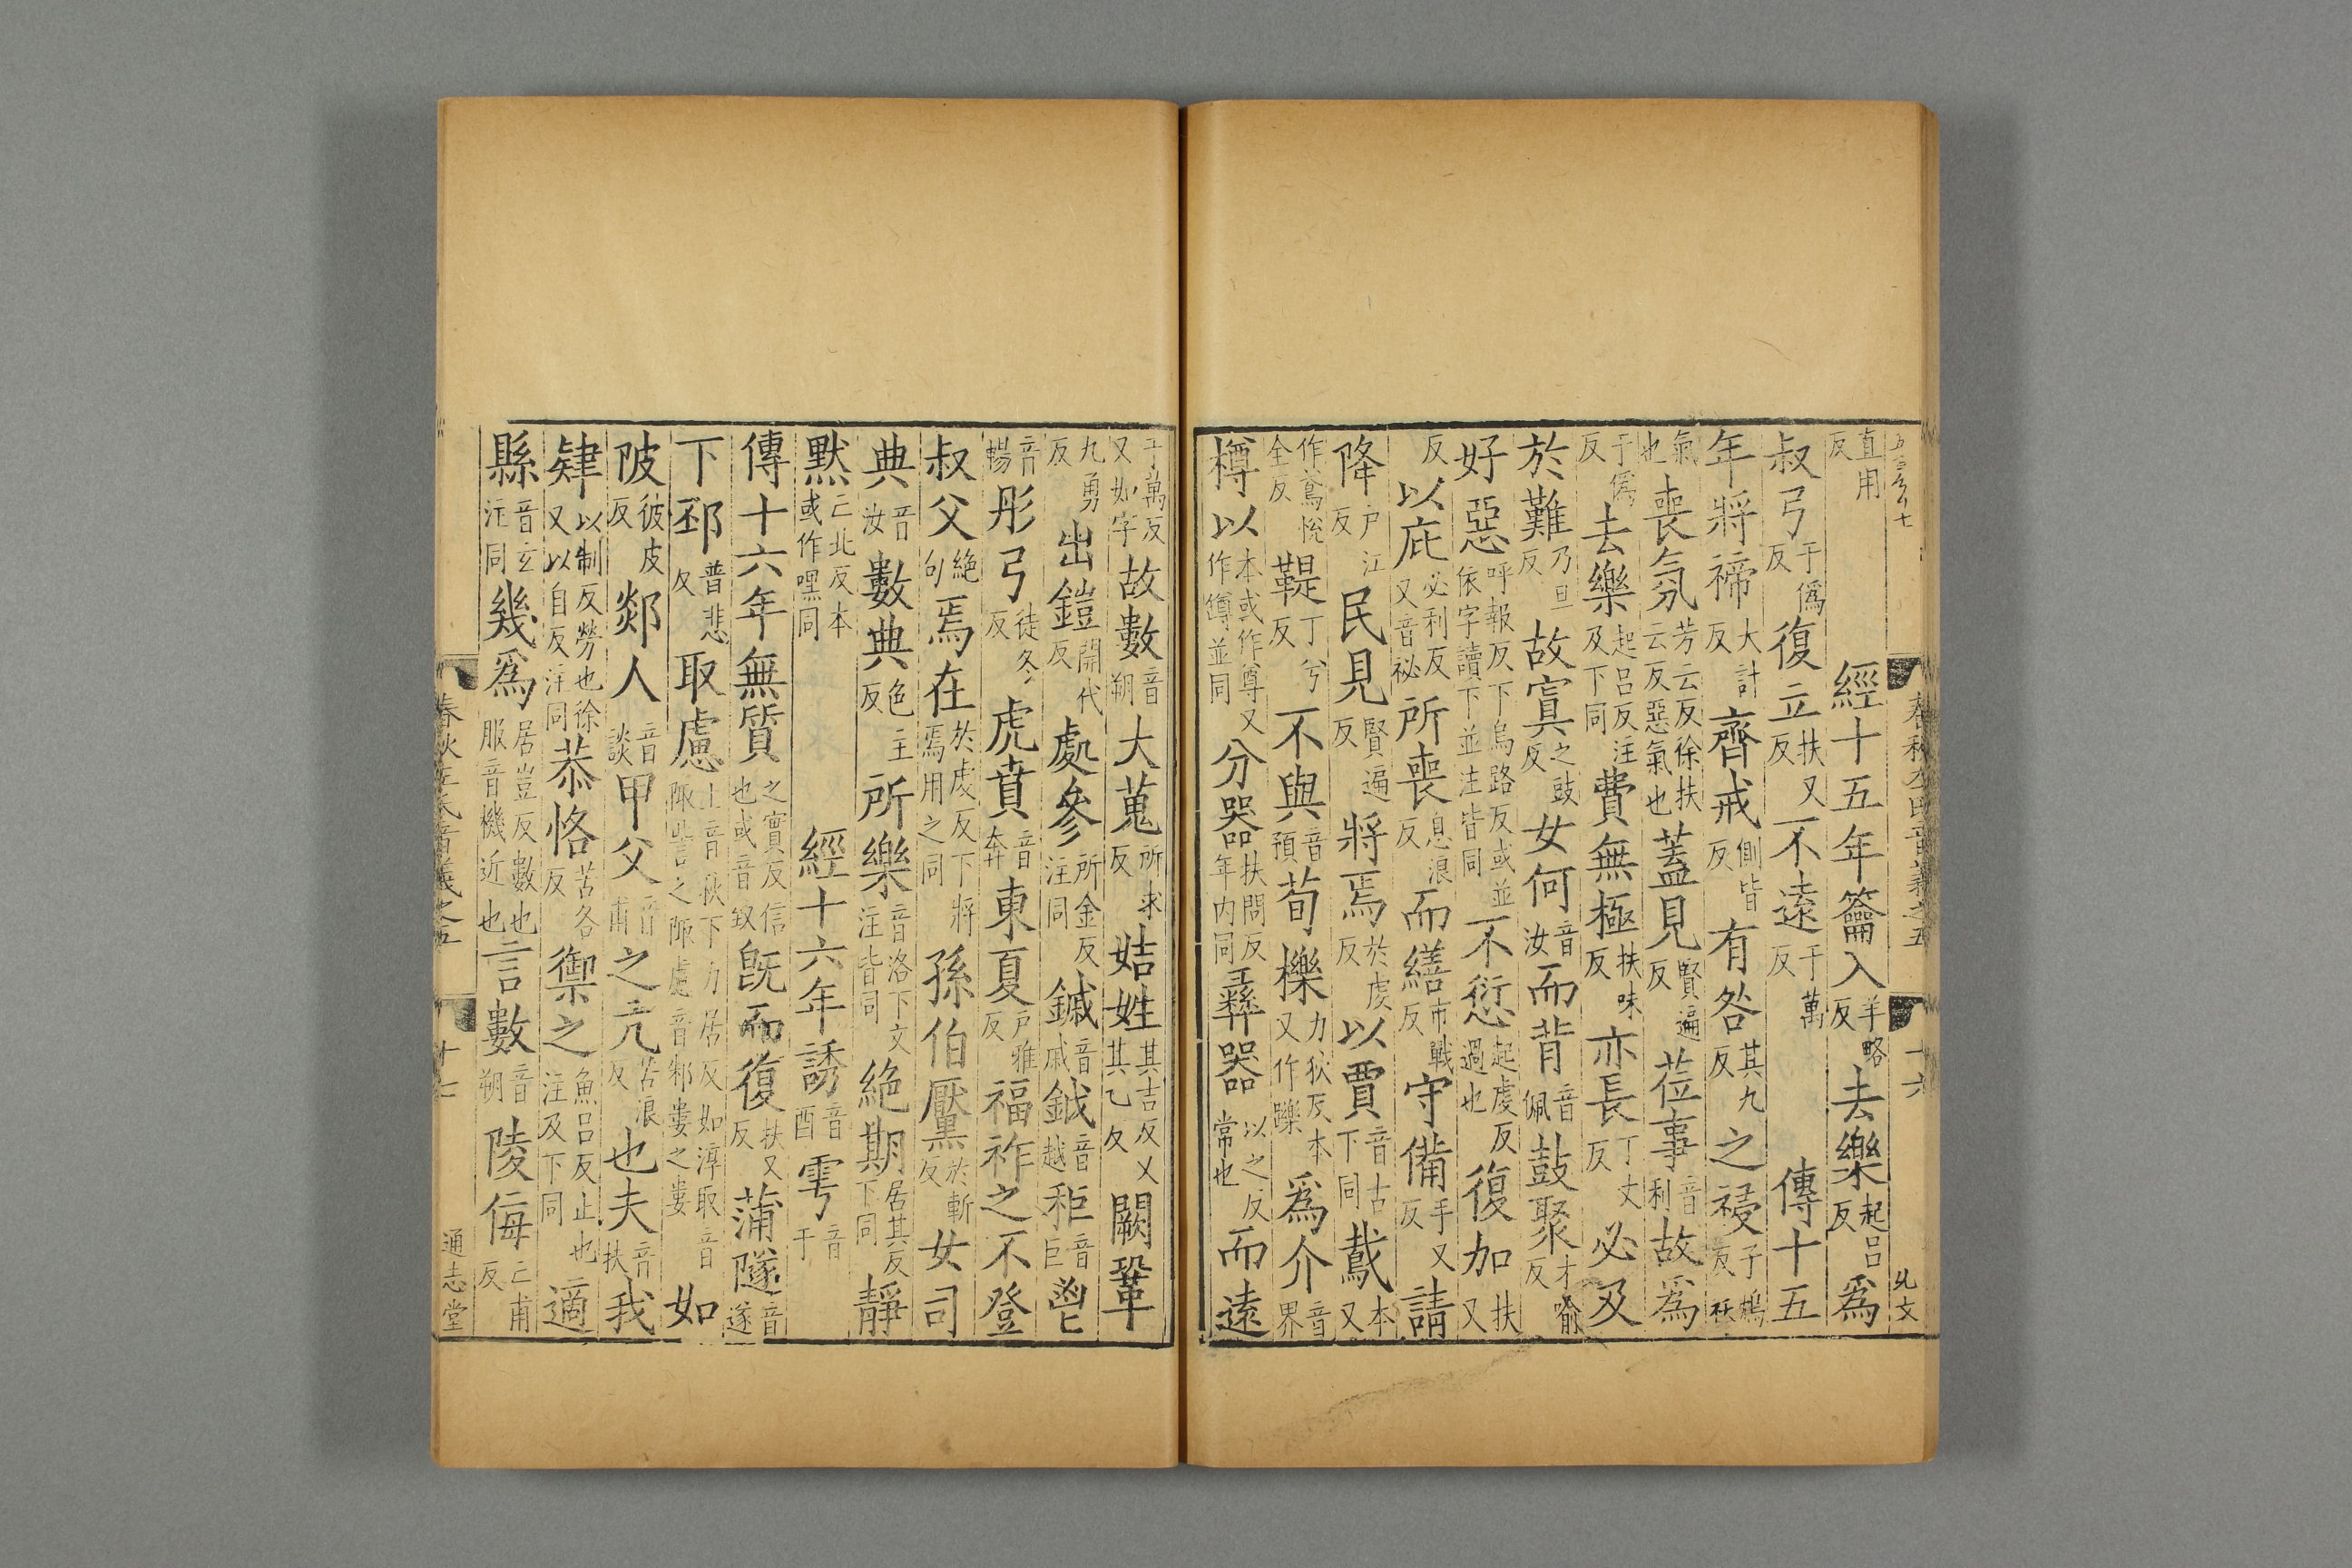 直用反經十五年籥入羊略反去樂起呂反爲
叔弓于僞反復立扶又反不遠于萬反傳十五
年將禘大計反齊戒側皆反有咎其九反之祲子鴆反祅
氣也喪氛芳云反徐扶云反惡氣也蓋見賢遍反莅事音利故爲
于僞反去樂起呂反注及下同費無極扶味反亦長丁丈反必及
於難乃旦反故寘之豉反女何音汝而背音佩鼓聚才喻反
好惡呼報反下烏路反或並依字讀下並注皆同不愆起虔反過也復加扶又
反以庇必利反又音祕所喪息浪反而繕市戰反守備手又反請
降户江反民見賢遍反將焉於虔反以賈音古下同䳒本又
作鳶悅全反鞮丁兮反不與音預荀櫟力狄反本又作躒爲介音界
樽以本或作尊又作罇並同分器扶問反年内同彞器以之反常也而遠
春秋左氏音義之五 十六
于萬反又如字故數音朔大蒐所求反姞姓其吉反又其乙反闕鞏
九勇反出鎧開代反處參所金反注同鏚音戚鉞音越秬音巨鬯
音暢彤弓徒冬反虎賁音奔東夏户雅反福祚之不登
叔父絶句焉在於虔反下將焉用之同孫伯黶於斬反女司
典音汝數典色主反所樂音洛下文注皆同絶期居其反下同靜
默亡北反本或作嘿同經十六年誘音酉雩音于
傳十六年無質之實反信也或音致旣而復扶又反蒲隧音遂
下邳普悲反取慮上音秋下力居反如淳取音陬訾之陬慮音邾婁之婁如
陂彼皮反郯人音談甲父音甫之亢苦浪反也夫音扶我
肄以制反勞也徐又以自反注同恭恪苦各反禦之魚呂反止也注及下同適
縣音玄注同幾爲居豈反數也服音機近也言數音朔陵侮亡甫反
春秋左氏音義之五 十七 通志堂